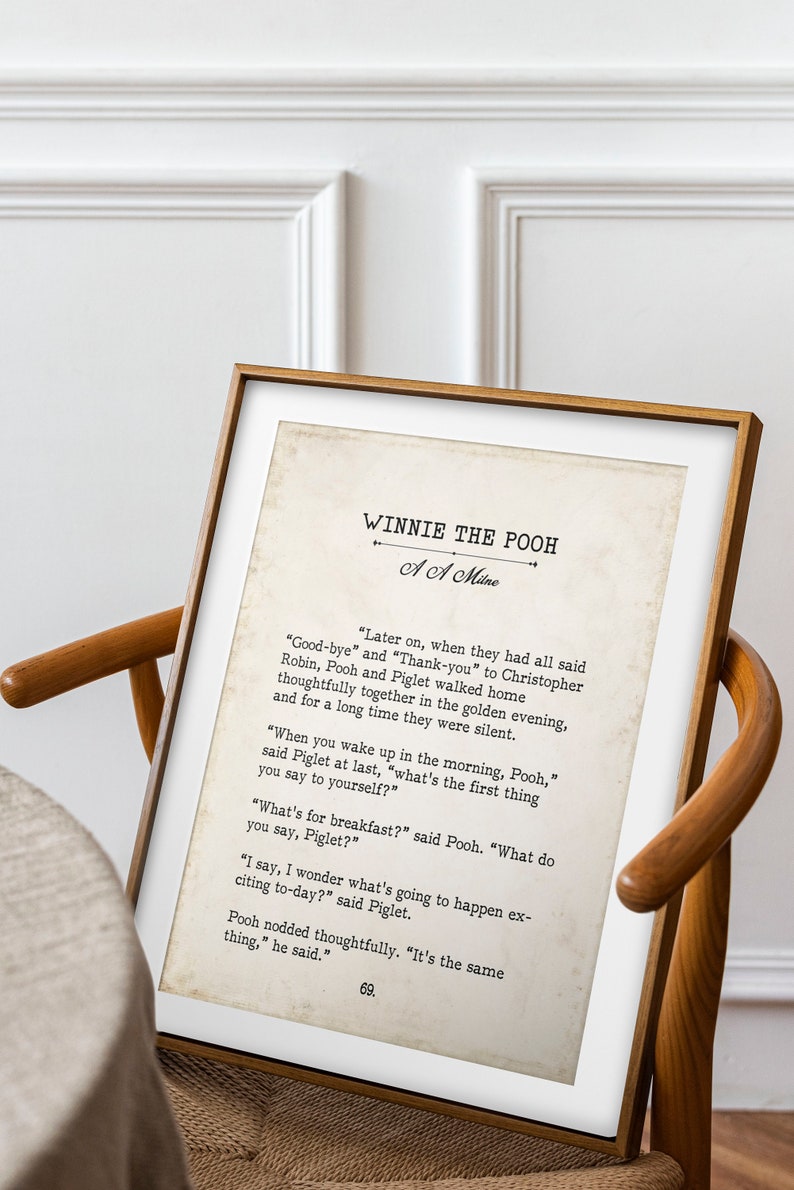 WINNIE THE POOH
A A Milne
“Later on, when they had all said
“Good-bye” and “Thank-you” to Christopher
Robin, Pooh and Piglet walked home
thoughtfully together in the golden evening,
and for a long time they were silent.
“When you wake up in the morning, Pooh,”
said Piglet at last, “what's the first thing
you say to yourself?”
“What's for breakfast?” said Pooh. “What do
you say, Piglet?”
“I say, I wonder what's going to happen ex-
citing to-day?” said Piglet.
Pooh nodded thoughtfully. “It's the same
thing,” he said.”
69.